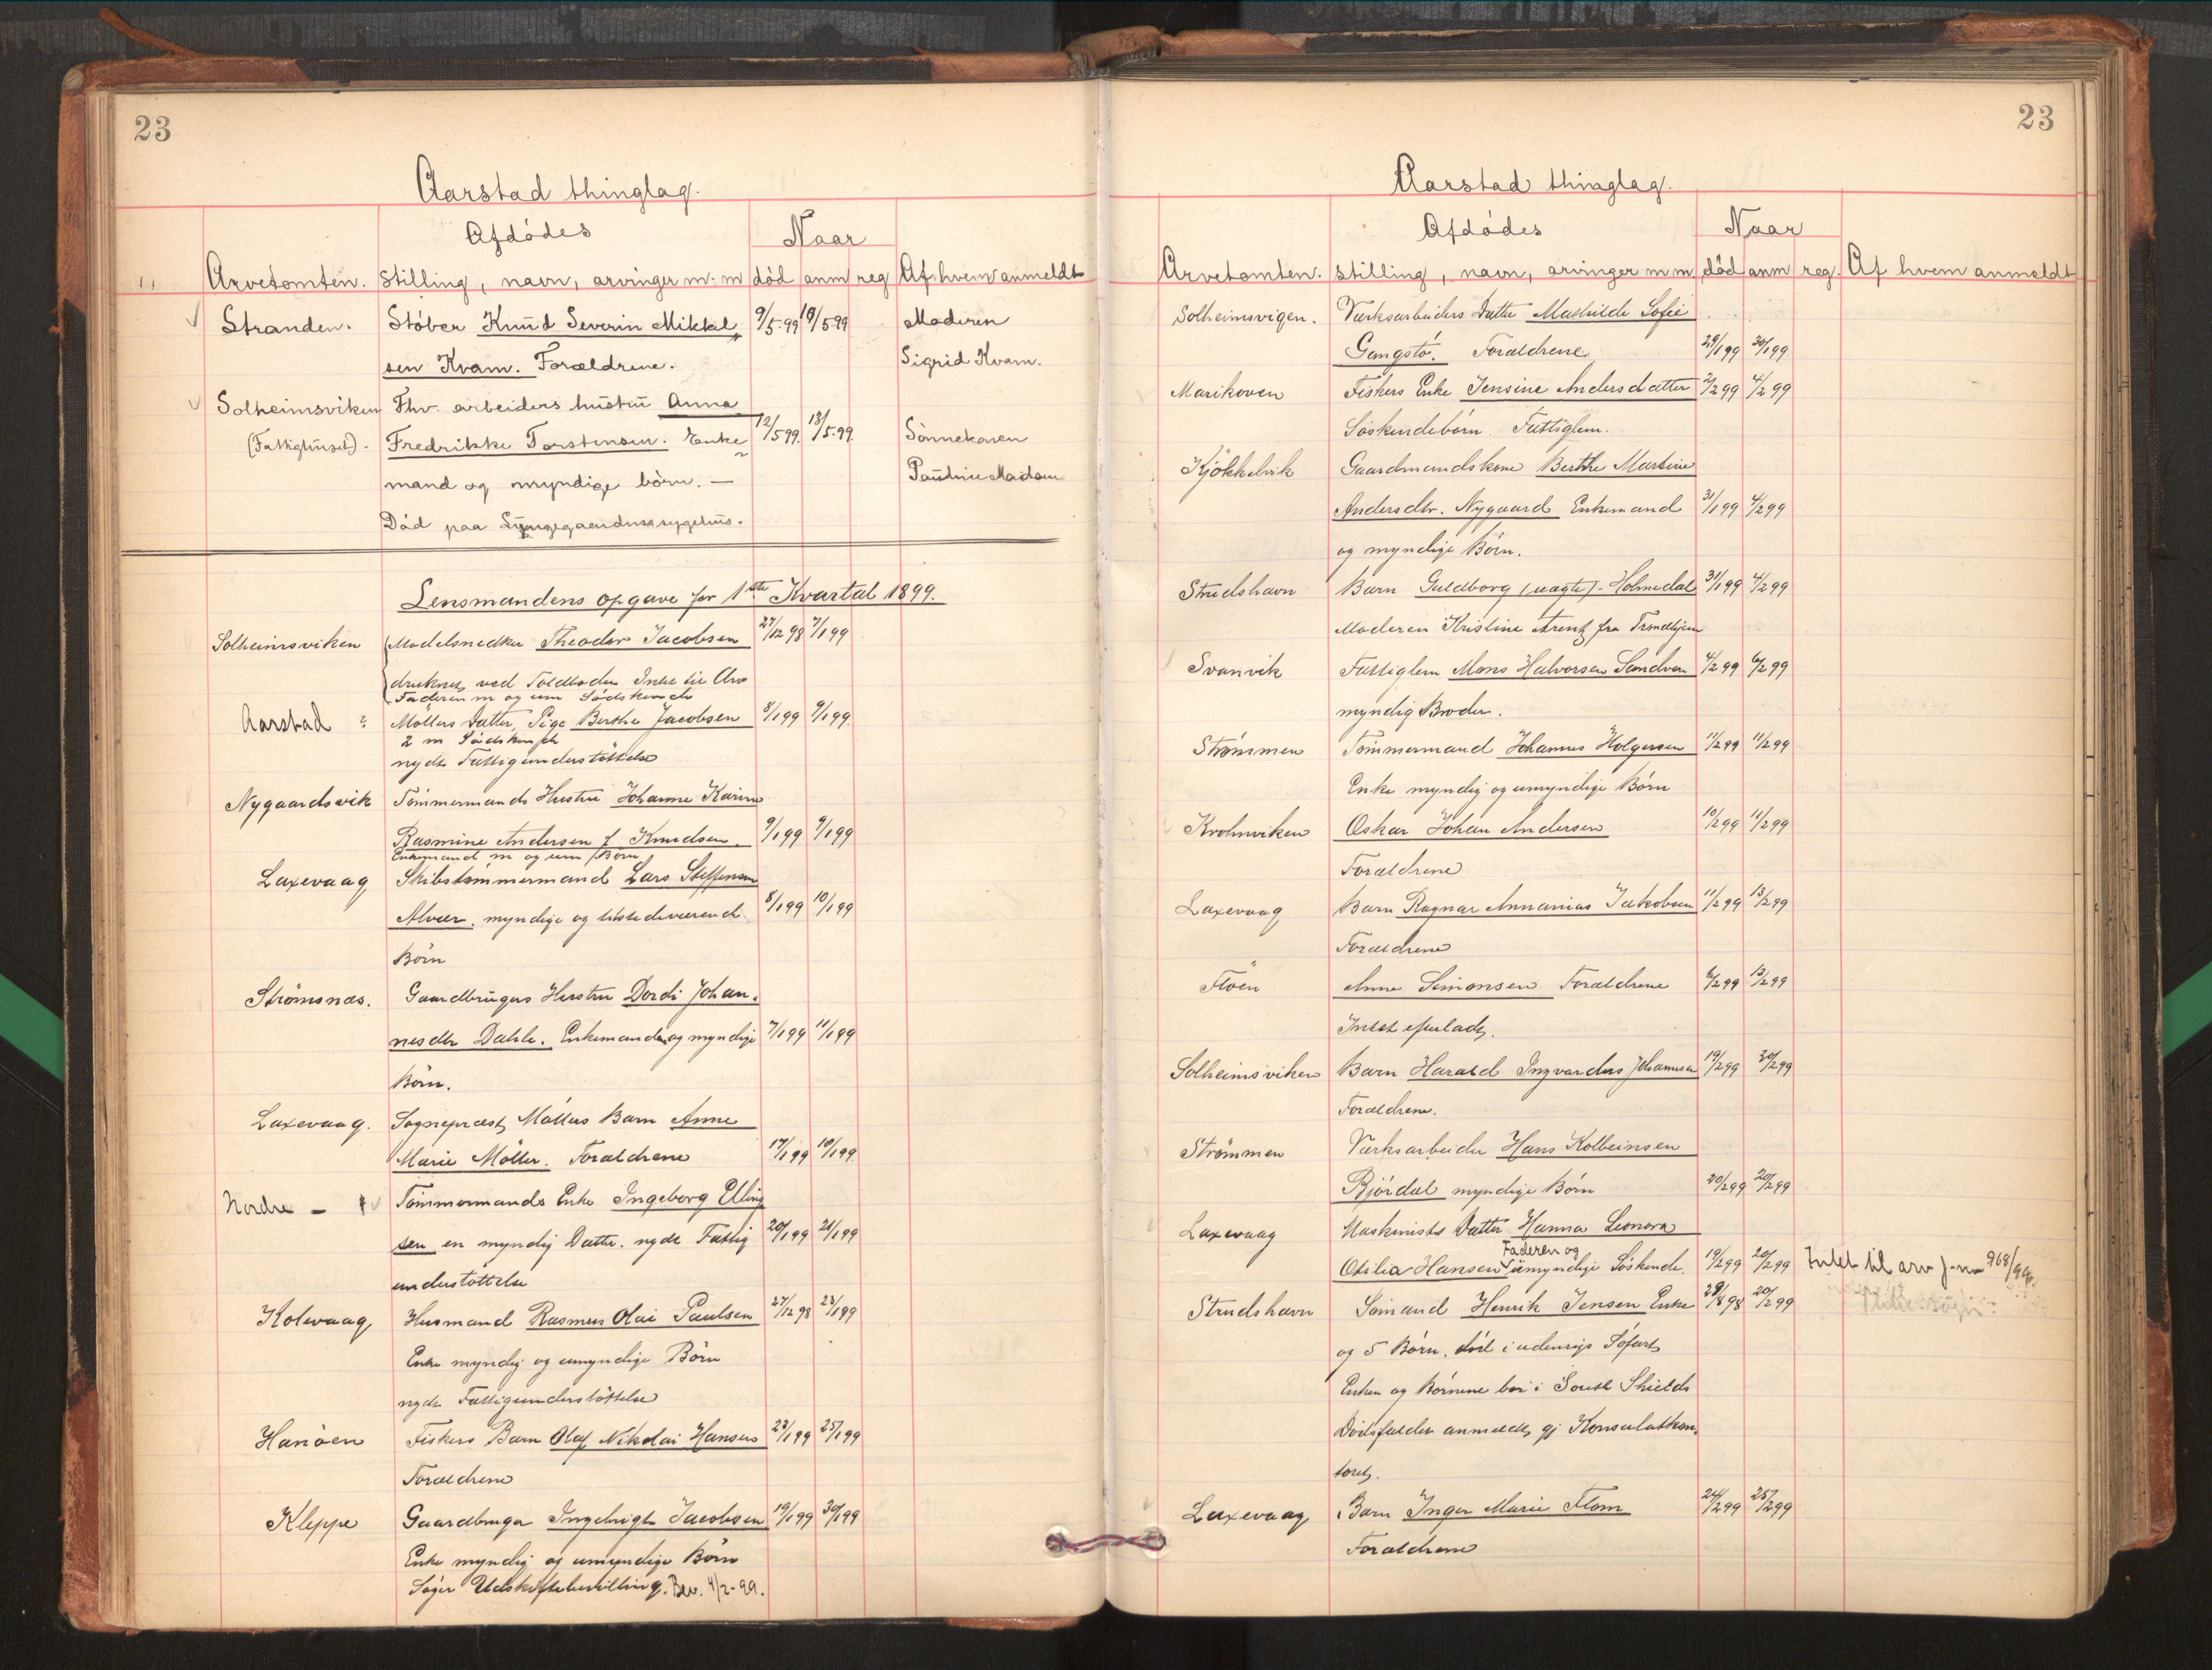 23
Aarstad thinglag.
Afdödes Naar
Arvetomten. Stilling, navn, arvinger m. m död anm reg Af hvem anmeldt
Stranden. Stöber Knud Severin Mikkel 9/5.99 10/5.99 Moderen
sen Kvam. Forældrene. Sigrid Kvam.
Solheimsviken Fhv. arbeiders hustru Anna
(Fattighuset) Fredrikke Torstensen. Enke 12/5 99. 13/5.99. Sönnekonen
mand og myndige börn. — Pauline Madsen
Död paa Lungegaardens sygehus.
Lensmandens opgave for 1ste Kvartal 1899.
Solheimsviken Modelsnedker Theodor Jacobsen 27/12 98 7/1 99
druknet ved Toldboden Intet til Arv
Faderen m og um Södskende
Aarstad ? Möllers Datter, Pige Berthe Jacobsen 8/1 99 9/1 99
2 m Södskende
nydt Fattigunderstöttelse
Nygaardsvik Tömmermands Hustru Johanne Karine
Rasmine Andersen f Knudsen. 9/1 99 9/1 99
Enkemand m og um Börn
Laxevaag Skibstömmermand Lars Steffensen
Alvær. myndige og tilstedeværende 8/1 99 10/1 99
Börn
Strömsnæs. Gaardbrugers Hustru Dordi Johan-
nesdtr Dahle. Enkemand og myndige 7/1 99 11/1 99
Börn.
Laxevaag. Sognepræst Möllers Barn Anne
Marie Möller. Forældrene 17/1 99 18/1 99
Nordre — Tömmermands Enke Ingeborg Elling
sen en myndig Datter. nydt Fattig 20/1 99 21/1 99
understöttelse
Kolevaag Husmand Rasmus Olai Paulsen 27/12 98 23/1 99
Enke myndig og umyndige Börn
nydt Fattigunderstöttelse
Hanöen Fiskers Barn Olaf Nikolai Hansen 23/1 99 25/1 99
Forældrene
Kleppe Gaardbruger Ingebrigt Jacobsen 19/1 99 30/1 99
Enke myndig og umyndige Börn
Söger Udskiftebevilling. Bev. 4/2-99.
23
Aarstad thinglag.
Afdödes Naar
Arvetomten. stilling, navn, arvinger m m död anm reg. Af hvem anmeldt
Solheimsvigen. Værksarbeiders Datter Mathilde Sofie
Gangstö. Forældrene 29/1 99 30/1 99
Marikoven Fiskers Enke Jensine Andersdatter 2/2 99 4/2 99
Söskendebörn. Fattiglem.
Kjökkelvik Gaardmandskone Berthe Martine
Andersdtr. Nygaard Enkemand 31/1 99 4/2 99
og myndige Börn.
Strudshavn Barn Guldborg (uægte) - Holmedal 31/1 99 4/2 99
Moderen Kristine Arentz fra Trondhjem
Svanvik Fattiglem Mons Halvorsen Sandven 4/2 99 6/2 99
myndig Broder.
Strömmen Tömmermand Johannes Holgersen 11/2 99 11/2 99
Enke myndig og umyndige Börn
Krohnviken Oskar Johan Andersen 10/2 99 11/2 99
Forældrene
Laxevaag Barn Ragnar Annanias Jakobsen 11/2 99 13/2 99
Forældrene
Flöen Anne Simonsen Forældrene 6/2 99 13/2 99
Intet efterladt.
Solheimsviken Barn Harald Ingvardus Johannesen 19/2 99 20/2 99
Forældrene.
Strömmen Værksarbeider Hans Kolbeinsen
Rjördal myndige Börn 20/2 99 20/2 99
Laxevaag Maskinists Datter Hanna Leonora
Faderen og
Otilia Hansen umyndige Söskende. 19/2 99 20/2 99 Intet til arv j. no 968/99.
Strudshavn Sömand Henrik Jensen Enke 28/8 98 20/2 99
og 5 Börn. död i udenrigs Söfart
Enken og Börnene bor i South Shields
Dödsfaldet anmeldt gj Konsulatkon-
toret.
Laxevaag Barn Inger Marie Flom 24/2 99 25/2 99
Forældrene